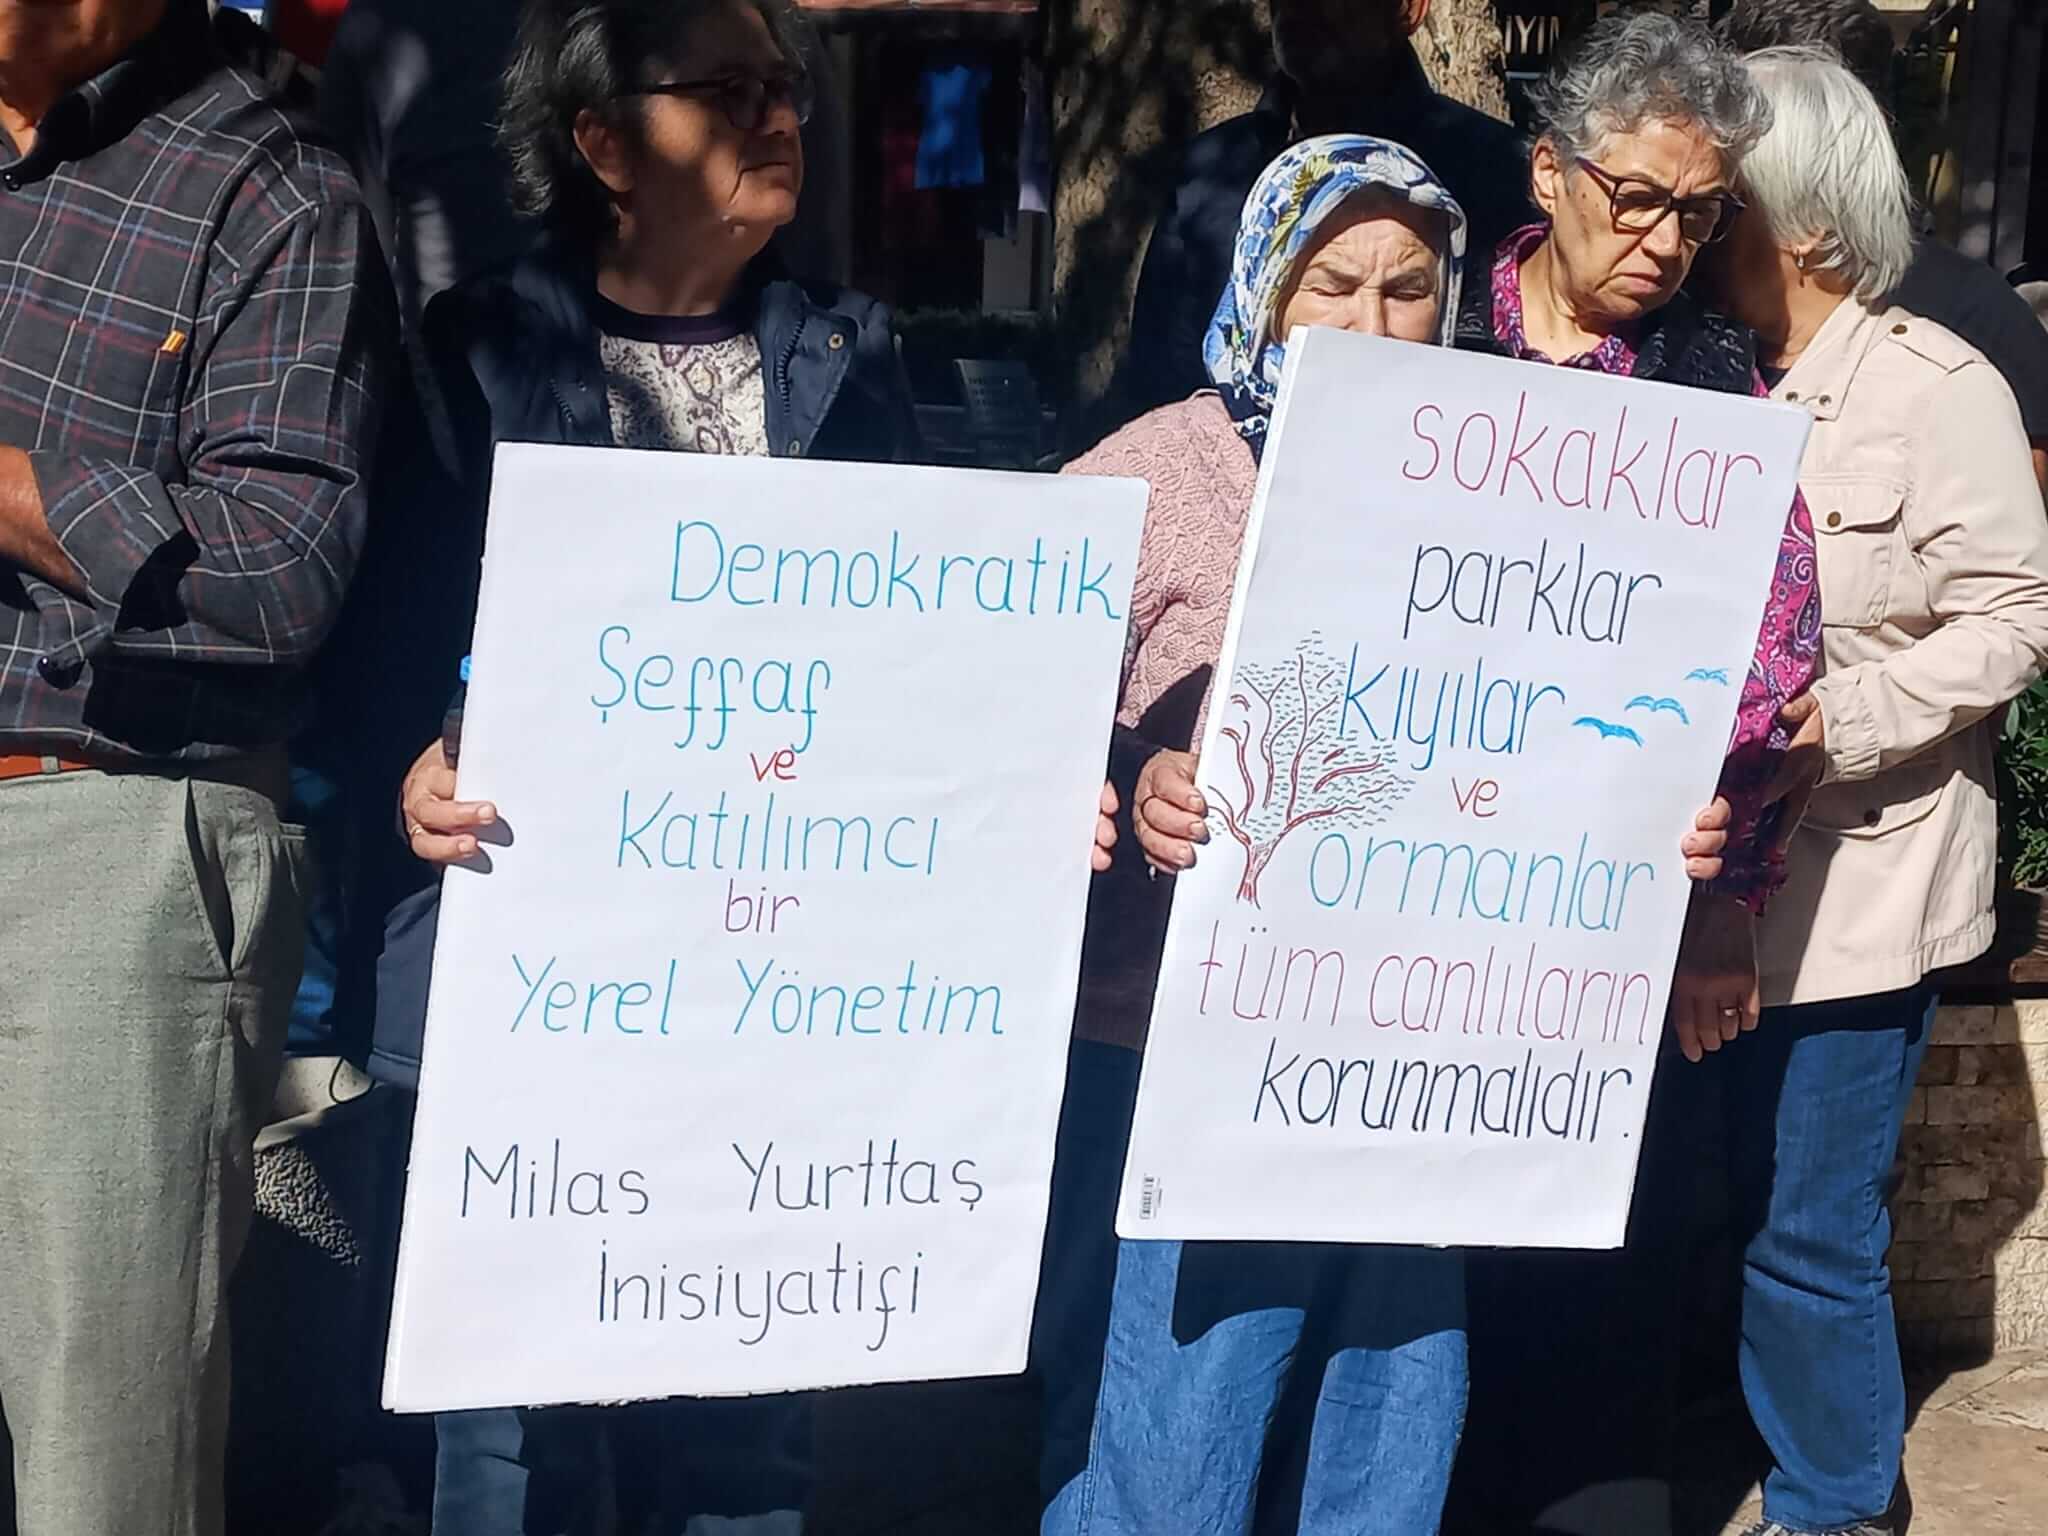 Demokratik
Şeffaf
ve
Katılımcı
bir
Yerel Yönetim
Milas Yurttaş
İnisiyatifi
sokaklar
parklar
kıyılar
ve
ormanlar
tüm canlıların
korunmalıdır.